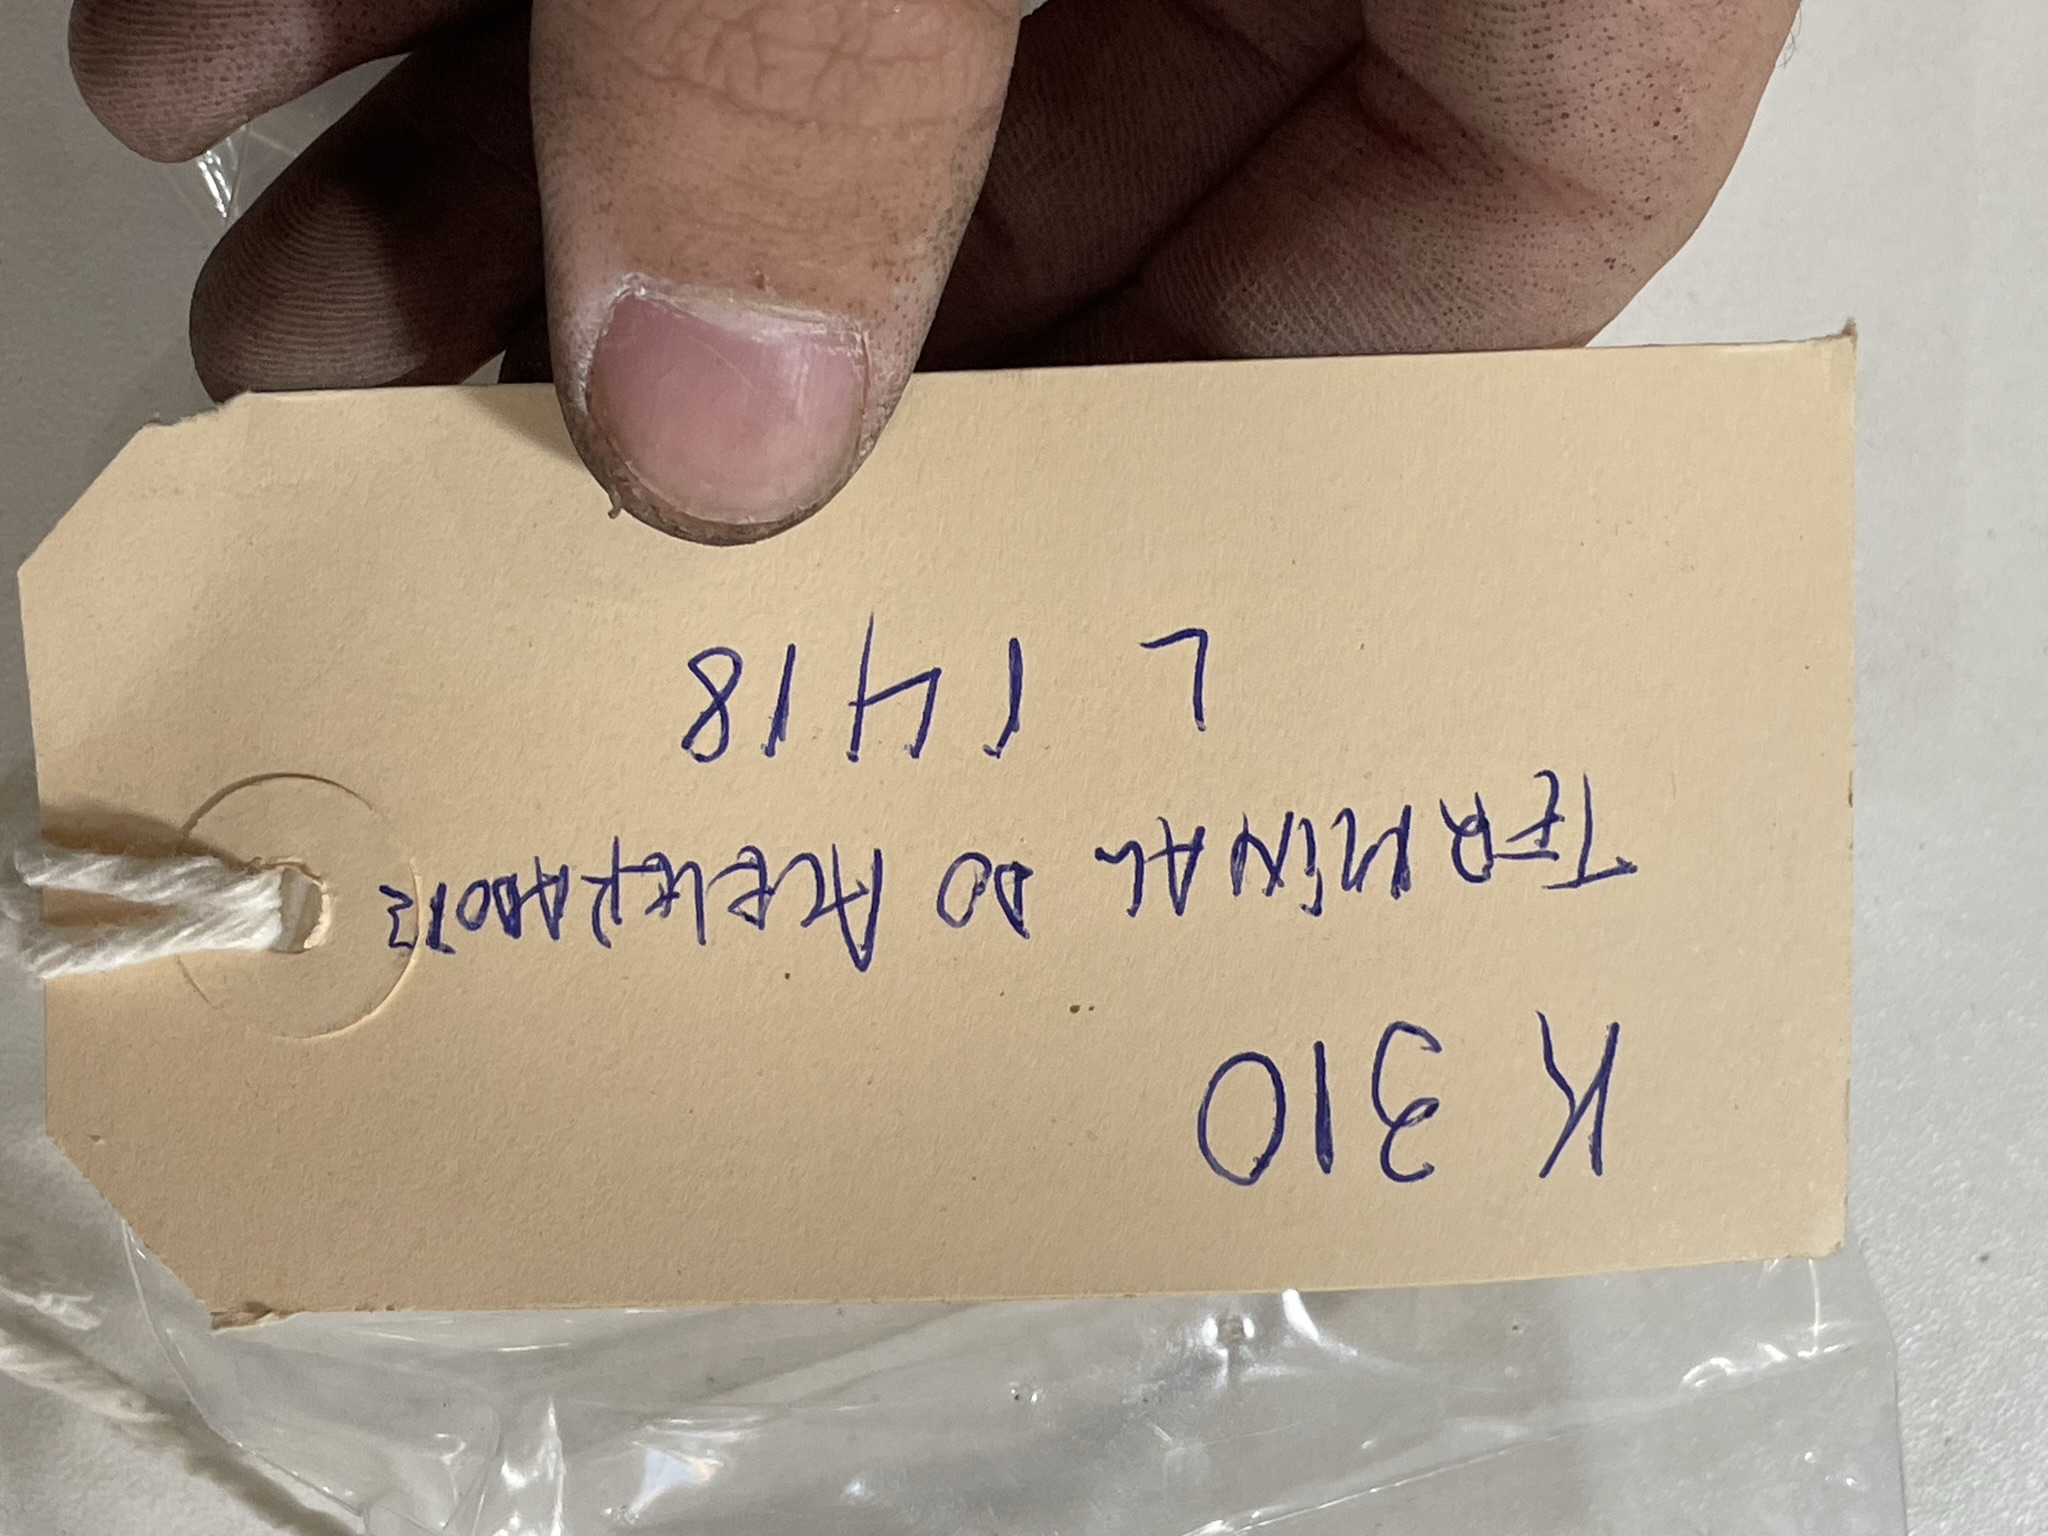 K 310
TERMINAL DO ACELERADOR
L 1418